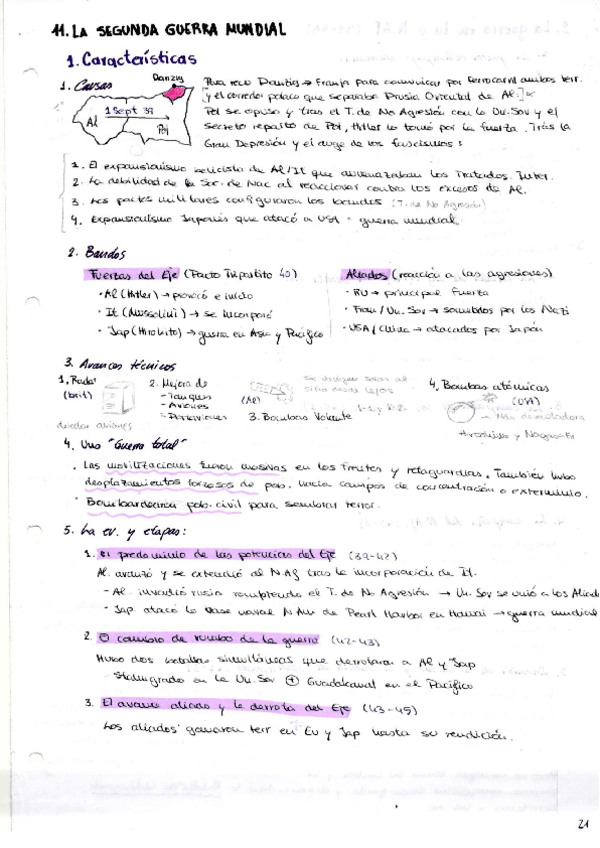 11. LA SEGUNDA GUERRA MUNDIAL
1. Características
1. Causas
Danzig
1 Sept 39
Al
Pol
Danzig → Franja para comunicar por ferrocarril ambos terr.
y el corredor polaco que separaba Prusia Oriental de Al.
Pol se opuso y tras el T. de No Agresión con la Un. Sov y el
secreto reparto de Pol, Hitler lo tomó por la fuerza. Tras la
Gran Depresión y el auge de los fascismos:
1. El expansionismo belicista de Al/It que amenazaban los Tratados Inter.
2. La debilidad de la Soc. de Nac al reaccionar contra los excesos de Al.
3. Los pactos militares configuraron los bandos (T. de No Agresión)
4. Expansionismo Japonés que atacó a USA = guerra mundial
2. Bandos
Fuerzas del Eje (Pacto Tripartito 40)
· Al (Hitler) → provocó e inició
· It (Mussolini) → se incorporó
· Jap (Hirohito) → guerra en Asia y Pacífico
Aliados (reacción a las agresiones)
· RU → principal fuerza
· Fran / Un. Sov → sometidos por los Nazi
· USA / China → atacados por Japón
3. Avances técnicos
1. Radar
(brit)
detectar aviones
2. Mejora de
- Tanques
- Aviones
- Portaviones
(Al)
3. Bombas Volante
se dirigen solas al
sitio desde lejos
4. Bombas atómicas
(USA)
Hiroshima y Nagasaki
4. Una "Guerra total"
· Las movilizaciones fueron masivas en los frentes y retaguardias. También hubo
desplazamientos forzosos de pob. hacia campos de concentración o exterminio.
· Bombardearon pob. civil para sembrar terror.
5. La ev. y etapas:
1. El predominio de las potencias del Eje (39-42)
Al. avanzó y se extendió al N. Áf tras la incorporación de It.
- Al. invadió rusia rompiendo el T. de No Agresión → Un. Sov se unió a los Aliados
- Jap. atacó la base naval N. Am de Pearl Harbor en Hawai → guerra mundial
2. El cambio de rumbo de la guerra (42-43)
Hubo dos batallas simultáneas que derrotaron a Al y Jap
- Stalingrado en la Un. Sov + Guadalcanal en el Pacífico
3. El avance aliado y la derrota del Eje (43-45)
Los aliados ganaron terr en Eu y Jap hasta su rendición.
21